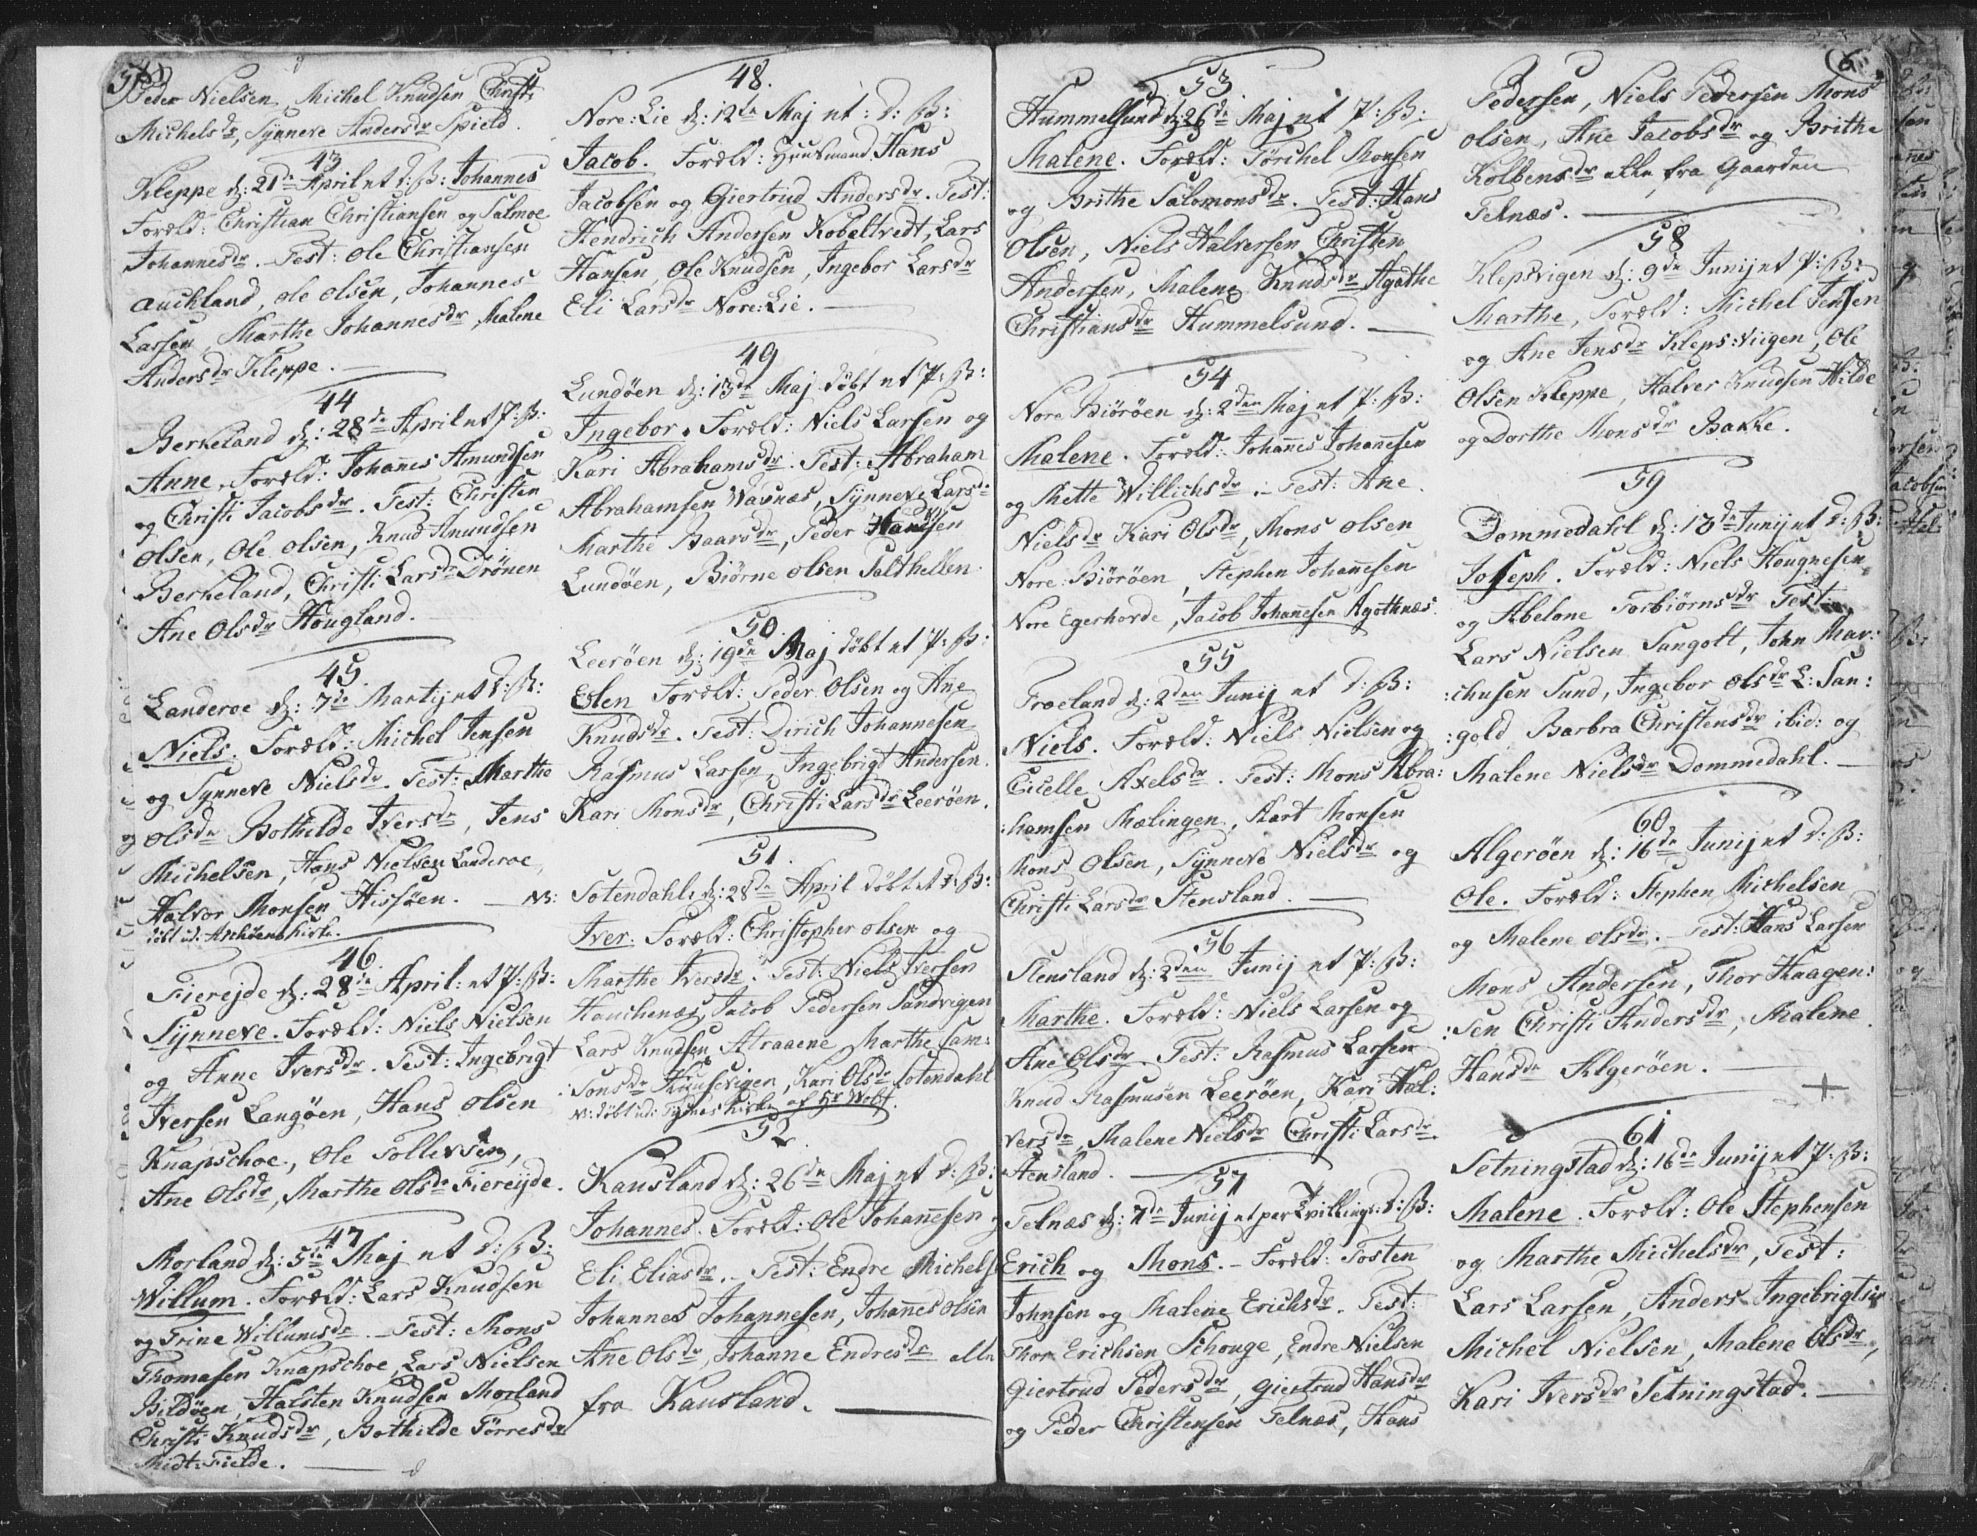 Peder Nielsen, Michel Knudsen Christi
Michelsdr, Synneve Andersdr Spield.
43
Kleppe d: 21de April et P: B: Johannes
Foræld: Christian Christiansen og Salmoe
Johannesdr. Test: Ole Christiansen
Auckland, Ole Olsen, Johannes
Larsen, Marthe Johannesdr, Malene
Andersdr Kleppe.
44
Berkeland d: 28de April et P: B:
Anne. Foræld: Johanes Amundsen
og Christi Jacobsdr. Test: Christen
Olsen, Ole Olsen, Knud Amundsen
Berkeland, Christi Larsdr Drönen
Ane Olsdr Hougland.
45.
Landeroe d: 7de Martij et D: B:
Niels. Foræld: Michel Jensen
og Synneve Nielsdr. Test: Marthe
Olsdr Bothilde Iversdr, Jens
Michelsen, Hans Nielsen Landeroe,
Halvor Monsen Hissöen. NB:
döbt ud: Asköens Kirke.
46.
Fierejde d: 28de April: et P: B:
Synneve. Foræld: Niels Nielsen
og Anne Iversdr. Test: Ingebrigt
Iversen Langöen, Hans Olsen
Knapschoe, Ole Tollevsen,
Ane Olsdr, Marthe Olsdr Fiereijde.
47
Morland d: 5te Maj et D: B:
Willum. Foræld: Lars Knudsen
og Trine Willumsdr. Test: Mons
Thomasen Knapschoe, Lars Nielsen
Bildöen, Halsten Knudsen Morland
Christi Knudsdr, Bothilde Törresdr
Midt:Fielde.
48.
Nore:Lie d: 12te Maj et: D: B:
Jacob. Foræld: Huusmand Hans
Jacobsen og Giertrud Andersdr. Test:
Hendrich Andersen Kobeltvedt, Lars
Hansen, Ole Knudsen, Ingebor Larsdr
Eli Larsdr Nore:Lie.
49
Lundöen d: 13de Maj döbt et P: B:
Ingebor. Foræld: Niels Larsen og
Kari Abrahamsdr. Test: Abraham
Abrahamsen Waenæs, Synneve Larsdr
Marthe Baarsdr, Peder Hansen
Lundöen, Biörne Olsen Salthellen.
50.
Leeröen d: 19de Maj döbt et P: B:
Elen Foræld: Peder Olsen og Ane
Knudsdr. Test: Dirich Johannesen
Rasmus Larsen, Ingebrigt Andersen.
Kari Monsdr, Christi Larsdr Leeröen.
51.
Totendahl: d: 28de April döbt et D: B:
Iver. Foræld: Christopher Olsen og
Marthe Iversdr. Test: Niels Iversen
Hauchenæs, Jacob Pedersen Sandvigen
Lars Knudsen Straaene Marthe Sam:
:sonsdr Knusevigen, Kari Olsdr Totendahl
NB: döbt ud: Tysnæs Kirke af Hr Webt.
52.
Kausland d: 26de Maj et D: B:
Johannes. Foræld: Ole Johanesen og
Eli Eliasdr. Test: Endre Michels
Johannes Johannesen, Johanes Olsen
Ane Olsdr, Johanne Endresdr alle
fra Kausland.
53.
Hummelsund d: 26de Maj et P: B:
Malene. Foræld: Törchel Monsen
og Brithe Salomonsdr. Test: Hans
Olsen, Niels Halversen, Christen
Andersen, Malene Knudsdr Agathe
Christiansdr Hummelsund.
54
Nore Biöröen d: 2den Maj et P: B:
Malene. Foræld: Johanis Johanesen
og Mette Willichsdr. Test: Ane
Nielsdr Kari Olsdr, Mons Olsen
Nore Biöröen, Stephen Johanesen
Nore Egerhovde, Jacob Johanesen Agothnæs.
55
Troeland d: 2den Junij et D: B:
Niels. Foræld: Niels Nielsen og
Cicelle Axelsdr. Test: Mons Abra:
:hamsen Mælingen, Aart Monsen
Mons Olsen, Synneve Nielsdr og
Christi Larsdr Stensland.
56
Stensland d: 2den Junij et P: B:
Marthe. Foræld: Niels Larsen og
Ane Olsdr. Test: Rasmus Larsen
Knud Rasmusen Leeröen, Kari Hal:
versdr, Malene Nielsdr Christi Larsdr.
Stensland.
57
Telnæs d: 7de Junij et per Tvillinge: D: B:
Erich og Mons. Foræld: Tosten
Johnsen og Malene Erichsdr. Test:
Thor Erichsen Schouge, Endre Nielsen
Giertrud Pedersdr, Giertrud Hansdr
og Peder Christensen Telnæs, Hans
6
Pedersen, Niels Pedersen Mons
Olsen, Ane Jacobsdr og Brithe
Kolbensdr alle fra Gaarden
Telnæs.
58
Klepsvigen d: 9de Junij et P: B:
Marthe, Foræld: Michel Jensen
og Ane Jensdr Kleps:Viigen, Ole
Olsen Kleppe, Halver Knudsen Wilde
og Dorthe Monsdr Bakke.
59
Dommedahl d: 13de Junij et D: B:
Joseph. Foræld: Niels Hougnesen
og Abelone Torbiörnsdr Test.
Lars Nielsen Sangolt, John Mar:
:chusen Sund, Ingebor Olsdr L: San:
:gold Barbra Christensdr ibid: og
Malene Nielsdr Dommedahl.
60
Algeröen d: 16de Junij et D: B:
Ole. Foræld: Stephen Michelsen
og Malene Olsdr. Test: Hans Larsen
Mons Andersen, Thor Haagen:
:sen Christi Andersdr, Malene
Hansdr Algeröen.
61
Tetningstad d: 16de Junij et P: B:
Malene. Foræld: Ole Stephensen
og Marthe Michelsdr, Test:
Lars Larsen, Anders Ingebrigtsen
Michel Nielsen, Malene Olsdr,
Kari Iversdr Tetningstad.